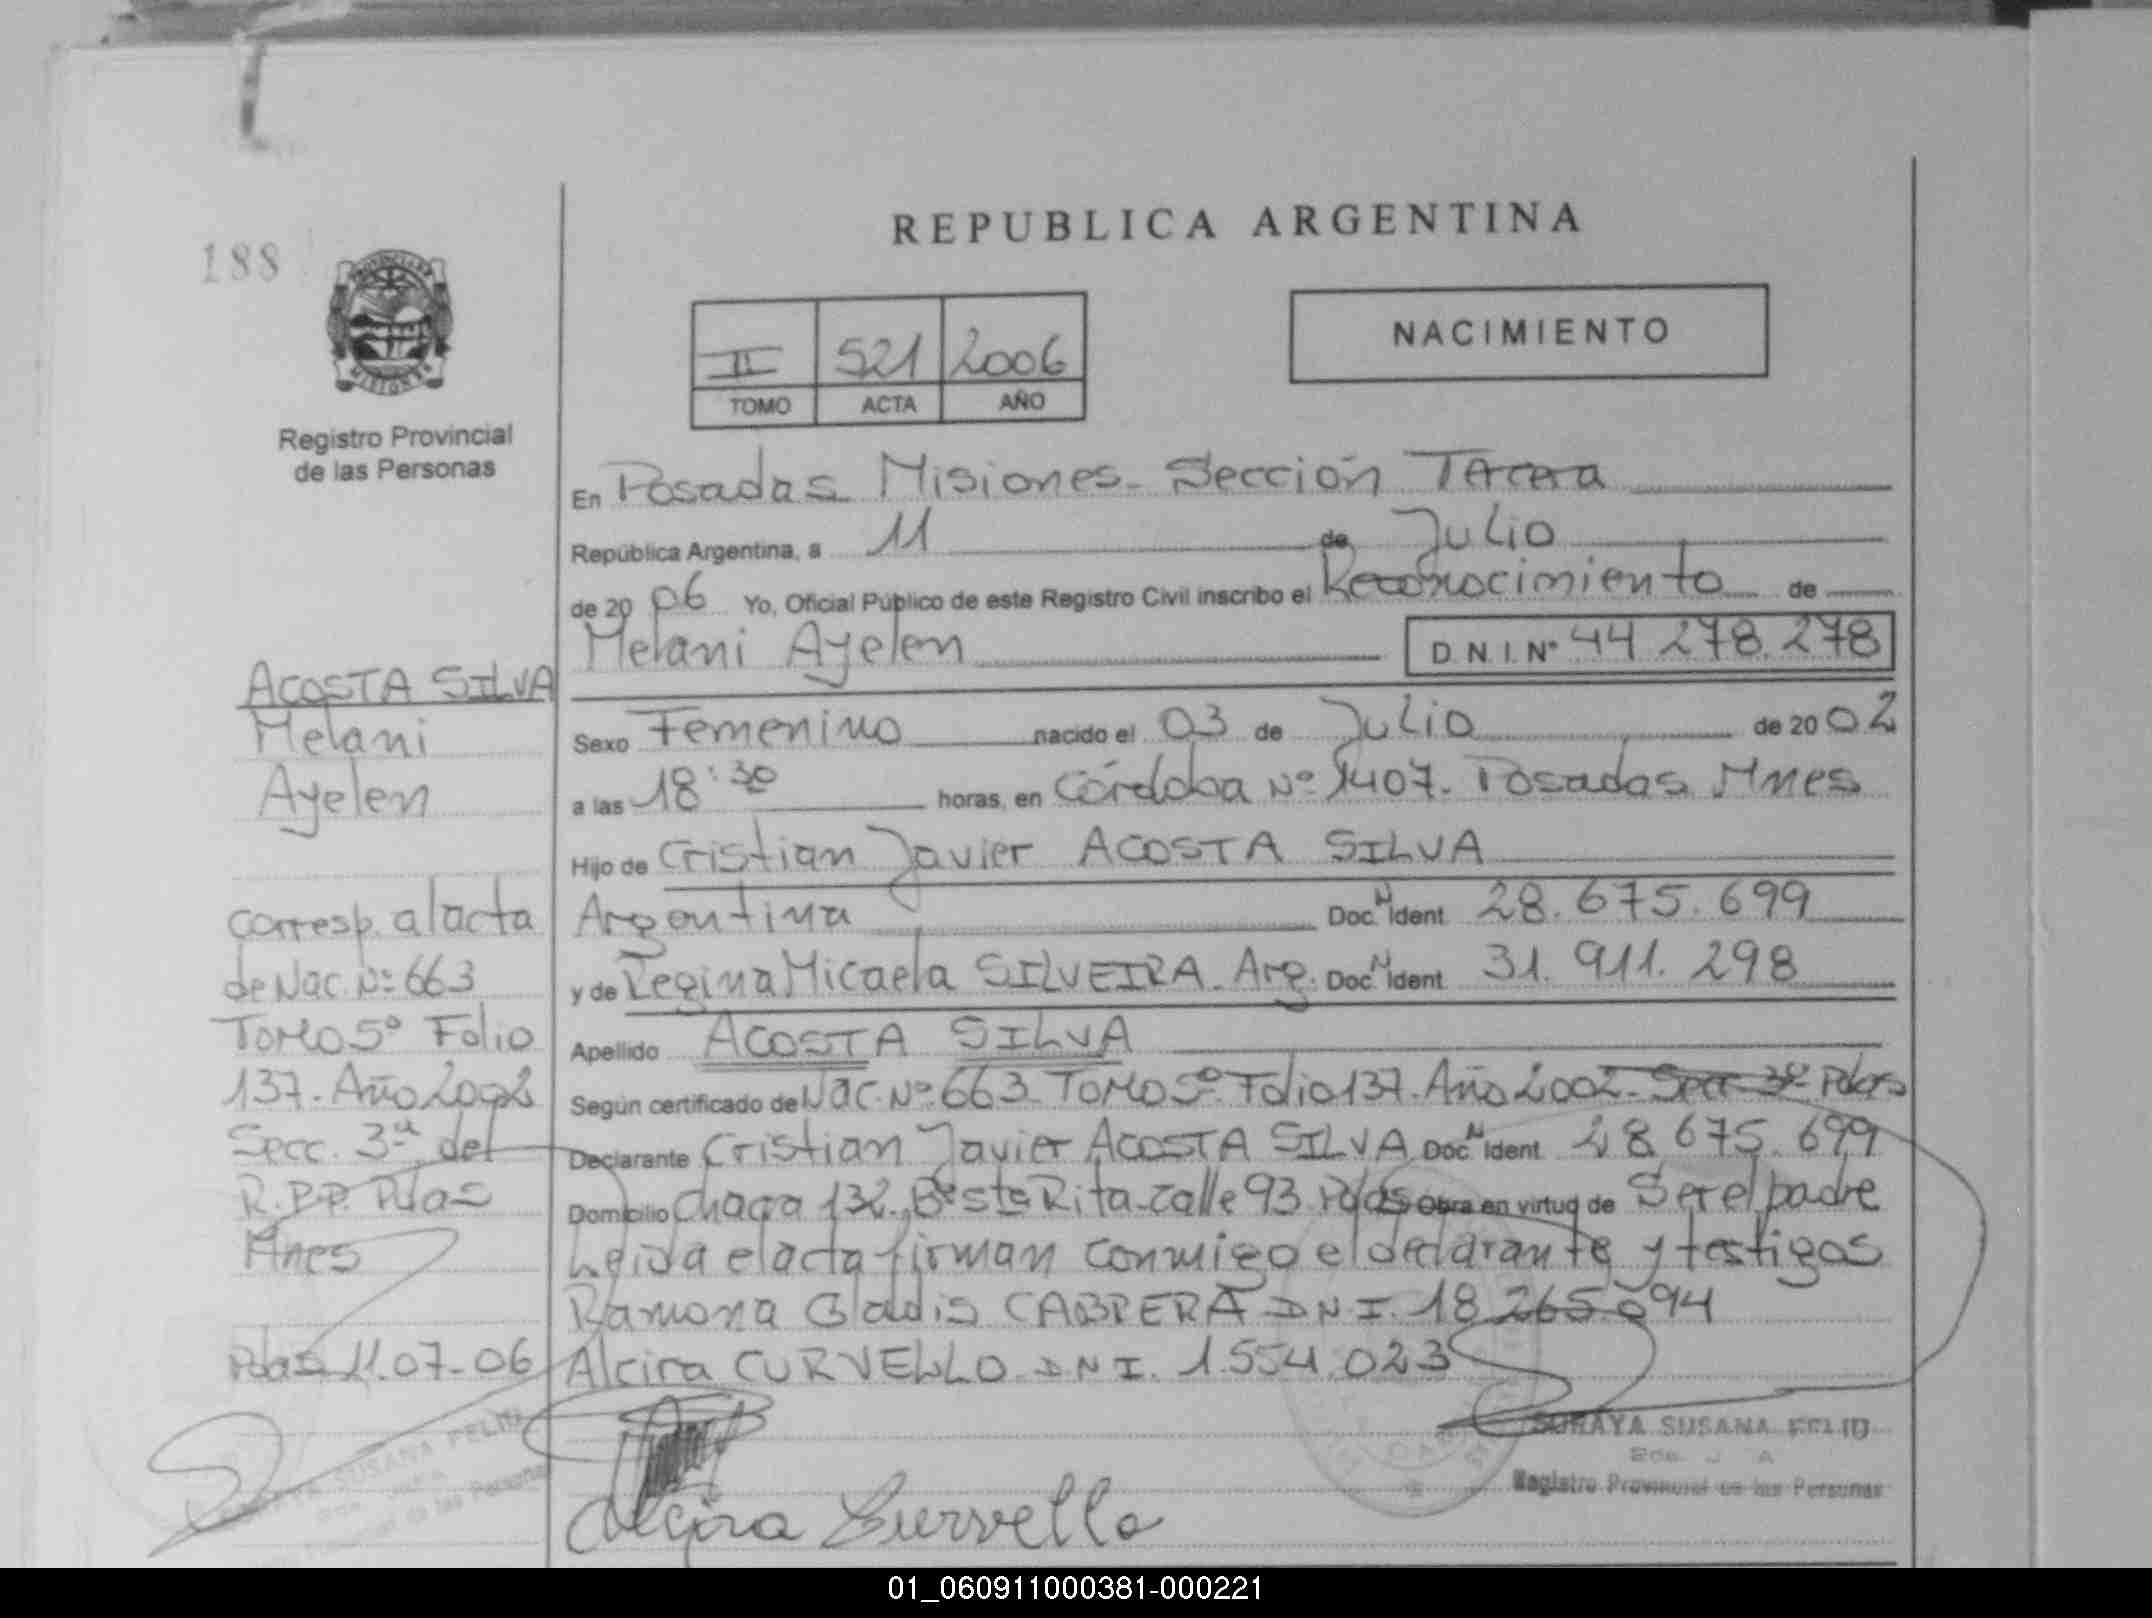 REPUBLICA ARGENTINA
188
PROVINCIA DE MISIONES
Registro Provincial
de las Personas
II 521 2006
TOMO ACTA AÑO
NACIMIENTO
En Posadas Misiones. Sección Tercera
República Argentina, a 11 de Julio
de 2006 Yo, Oficial Público de este Registro Civil inscribo el Reconocimiento de
Melani Ayelen D.N.I. Nº 44 278.278
Sexo Femenino nacido el 03 de Julio de 2002
a las 18:30 horas, en Córdoba Nº 1407. Posadas Mnes
Hijo de Cristian Javier ACOSTA SILVA
Argentina Doc. N Ident. 28.675.699
y de Regina Micaela SILVEIRA. Arg. Doc. N Ident. 31.911.298
Apellido ACOSTA SILVA
Según certificado de Nac. Nº 663 TOMO 5º Folio 137. Año 2002. Secc 3ª Pdas
Declarante Cristian Javier ACOSTA SILVA Doc. N Ident. 28 675.699
Domicilio chaca 132. Bº Sta Rita-calle 93 Pdas Obra en virtud de Ser el padre
Leida el acta firman conmigo el declarante y testigos
Ramona Gladis CABRERA D.N.I. 18.265.094
Alcira CURVELLO D N I. 1.554.023
ACOSTA SILVA
Melani
Ayelen
Corresp. al acta
de Nac. Nº 663
TOMO 5º Folio
137. Año 2002
Secc. 3ª del
R.P.P. Pdas
Mnes
Pdas 11.07.06
SUSANA FELIU
de las Personas
Alcira Curvello
SORAYA SUSANA FELIU
Registro Provincial de las Personas
01_060911000381-000221